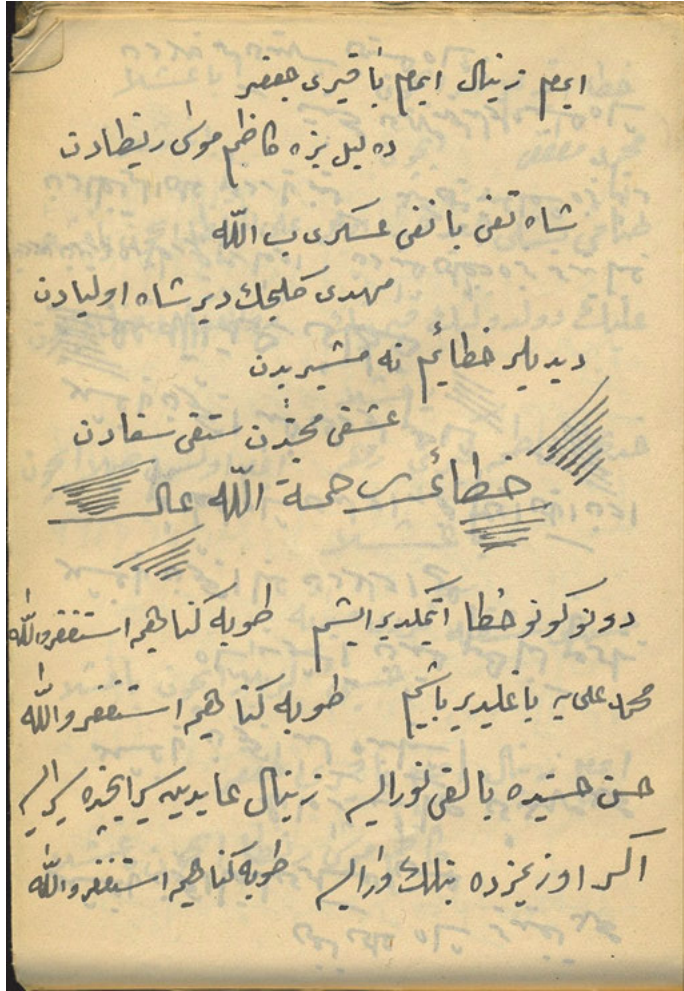 ایمام زینال ایمام باقیری جعفر
ده لیل بزه کاظم موسٰی ریظادن
شاه تقی با نقی عسکری ب الله
مهدی کلیجك دیر شاه اولیادن
دیدیلر خطائیم نه مشیریدن
عشقی محمّدن ستقی سفادن
خطائی رحمة الله عال
دونو کونو خطا آتمکلدیر ایشم طوبه کناهیم استغفروالله
محمد علی یه باغلیدیر باشیم طوبه کناهیم استغفروالله
حسن حسیده بالقی نورالیر زینال عابدیه
اکر اوزیمزده بنلك وارالیر طوبه کناهیم استغفروالله